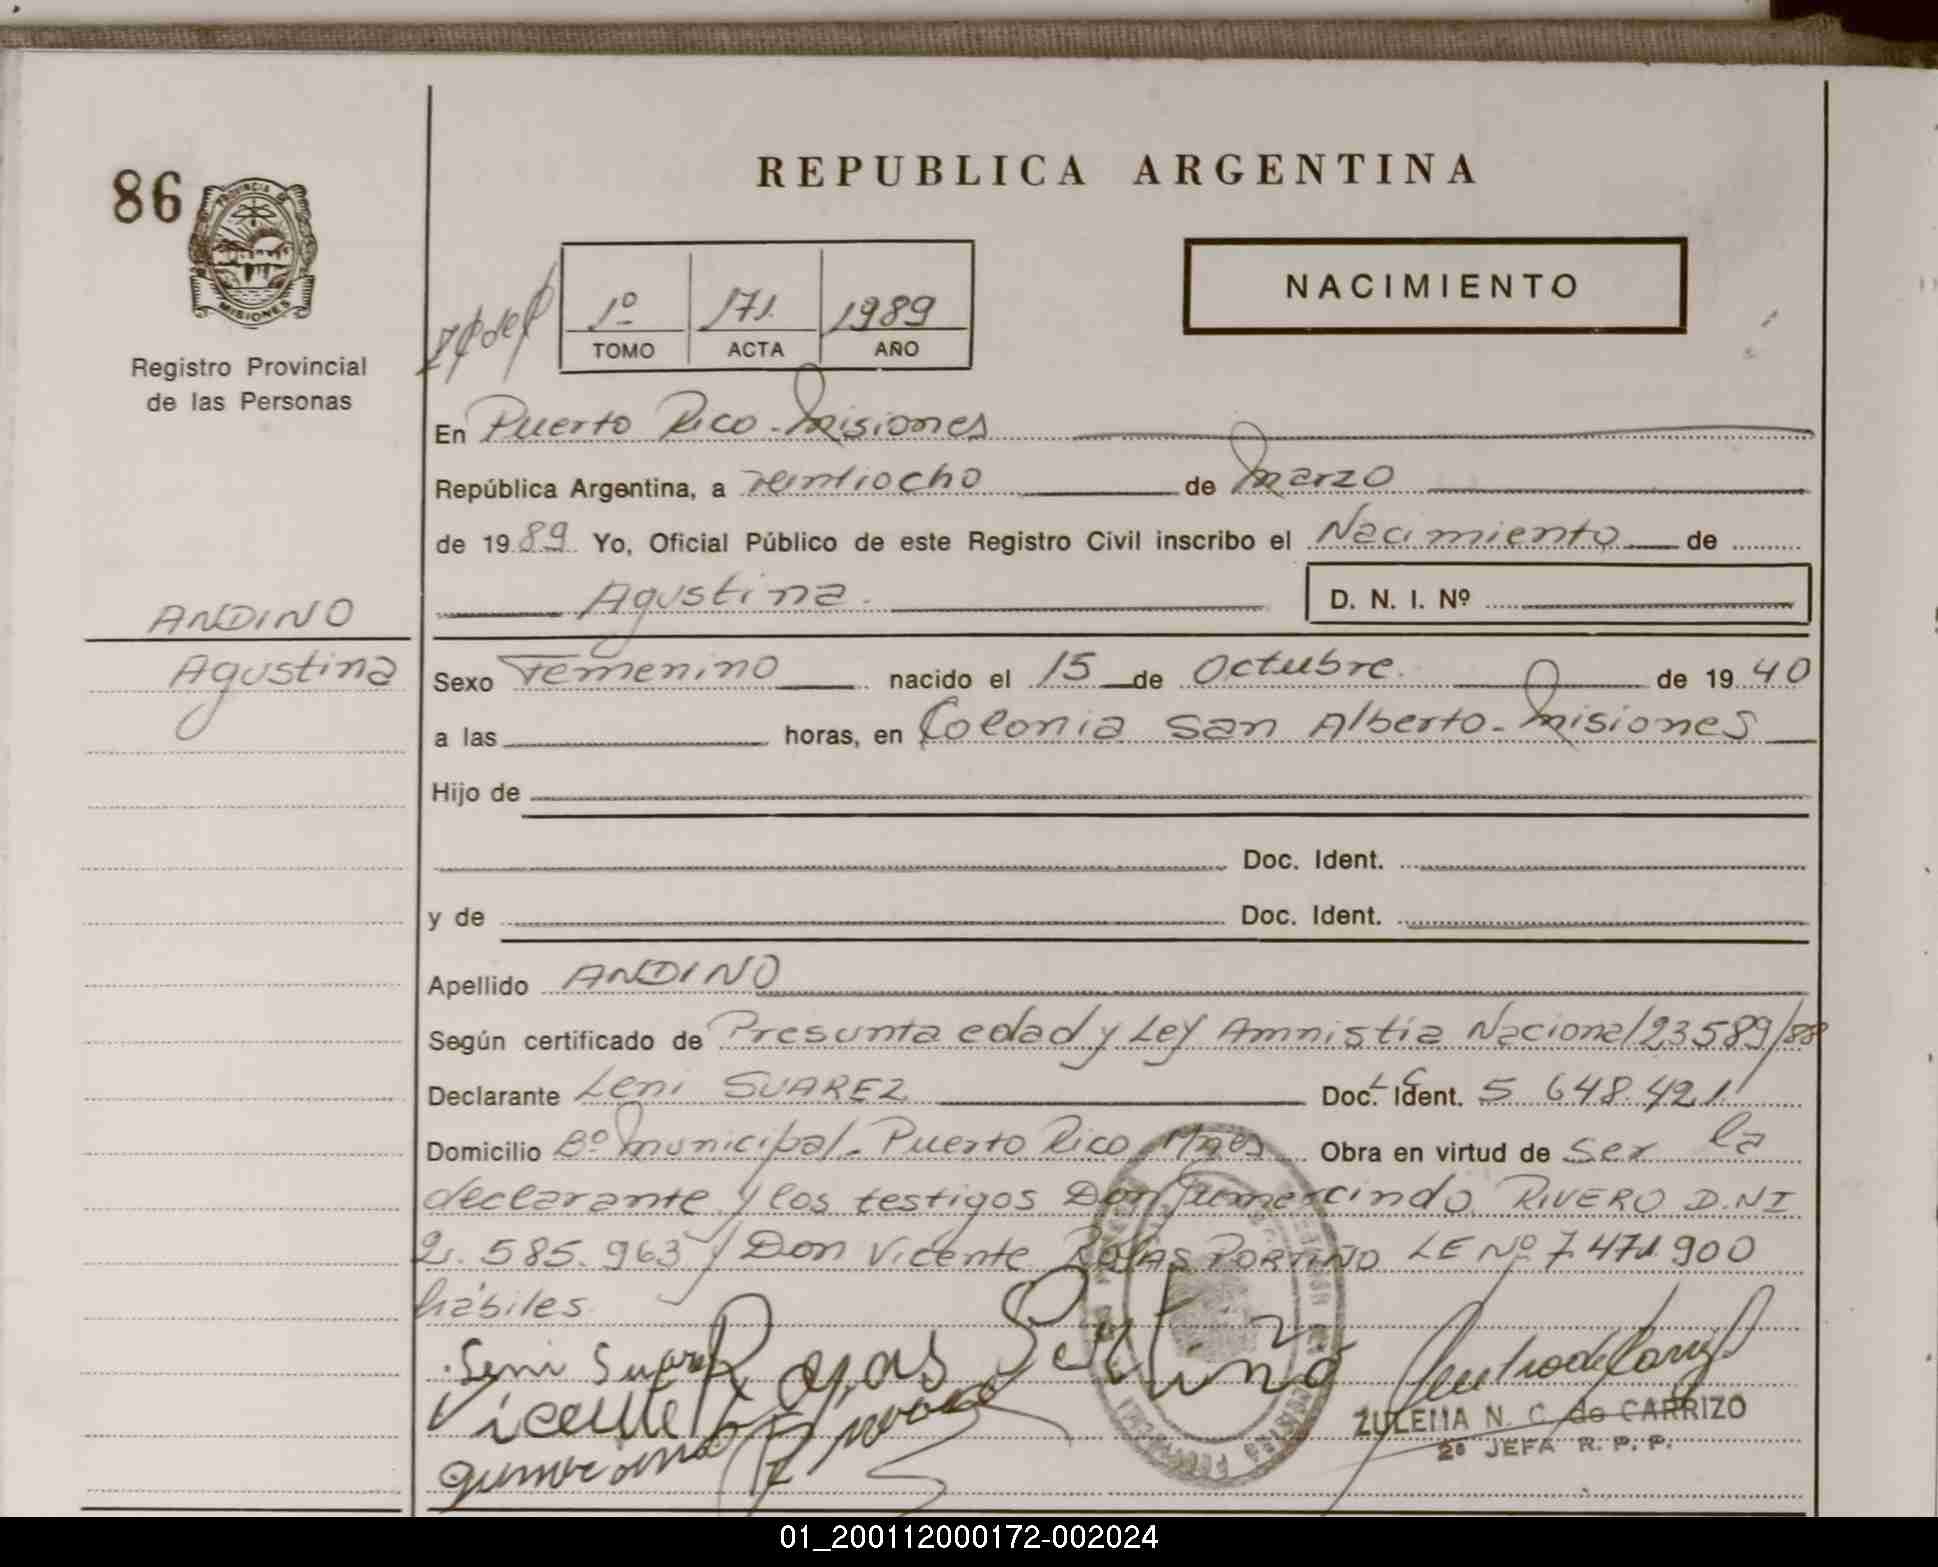 REPUBLICA ARGENTINA
86
PROVINCIA DE
MISIONES
NACIMIENTO
1º 171. 1989
TOMO ACTA AÑO
Registro Provincial
de las Personas
En Puerto Rico - Misiones
República Argentina, a veintiocho de Marzo
de 1989. Yo, Oficial Público de este Registro Civil inscribo el Nacimiento de
Agustina. D. N. I. Nº
ANDINO
Agustina
Sexo Femenino nacido el 15 de Octubre. de 1940
a las horas, en Colonia San Alberto - Misiones
Hijo de
Doc. Ident.
y de Doc. Ident.
Apellido ANDINO
Según certificado de Presunta edad y Ley Amnistía Nacional 23589/88
Declarante Leni SUAREZ Doc. Ident. LC 5 648.421
Domicilio Bº Municipal - Puerto Rico Mnes Obra en virtud de ser la
declarante y los testigos Don Gumercindo RIVERO D.NI
2.585.963 y Don Vicente ROJAS PORTIÑO LE Nº 7.471.900
hábiles
Leni Suarez Rojas Portiño
Vicente
ZULEMA N. C. de CARRIZO
2º JEFA R. P. P.
01_200112000172-002024